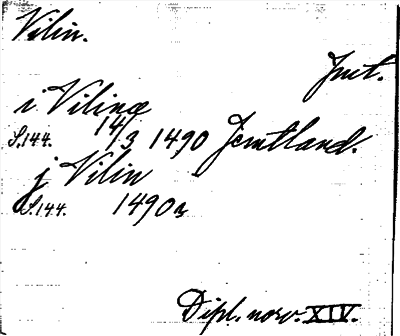 Vilin.
Jmt.
i Vilinæ
S. 144. 14/3 1490 Jemtland.
j Vilin
S. 144. 1490
Dipl. norv. XIV.